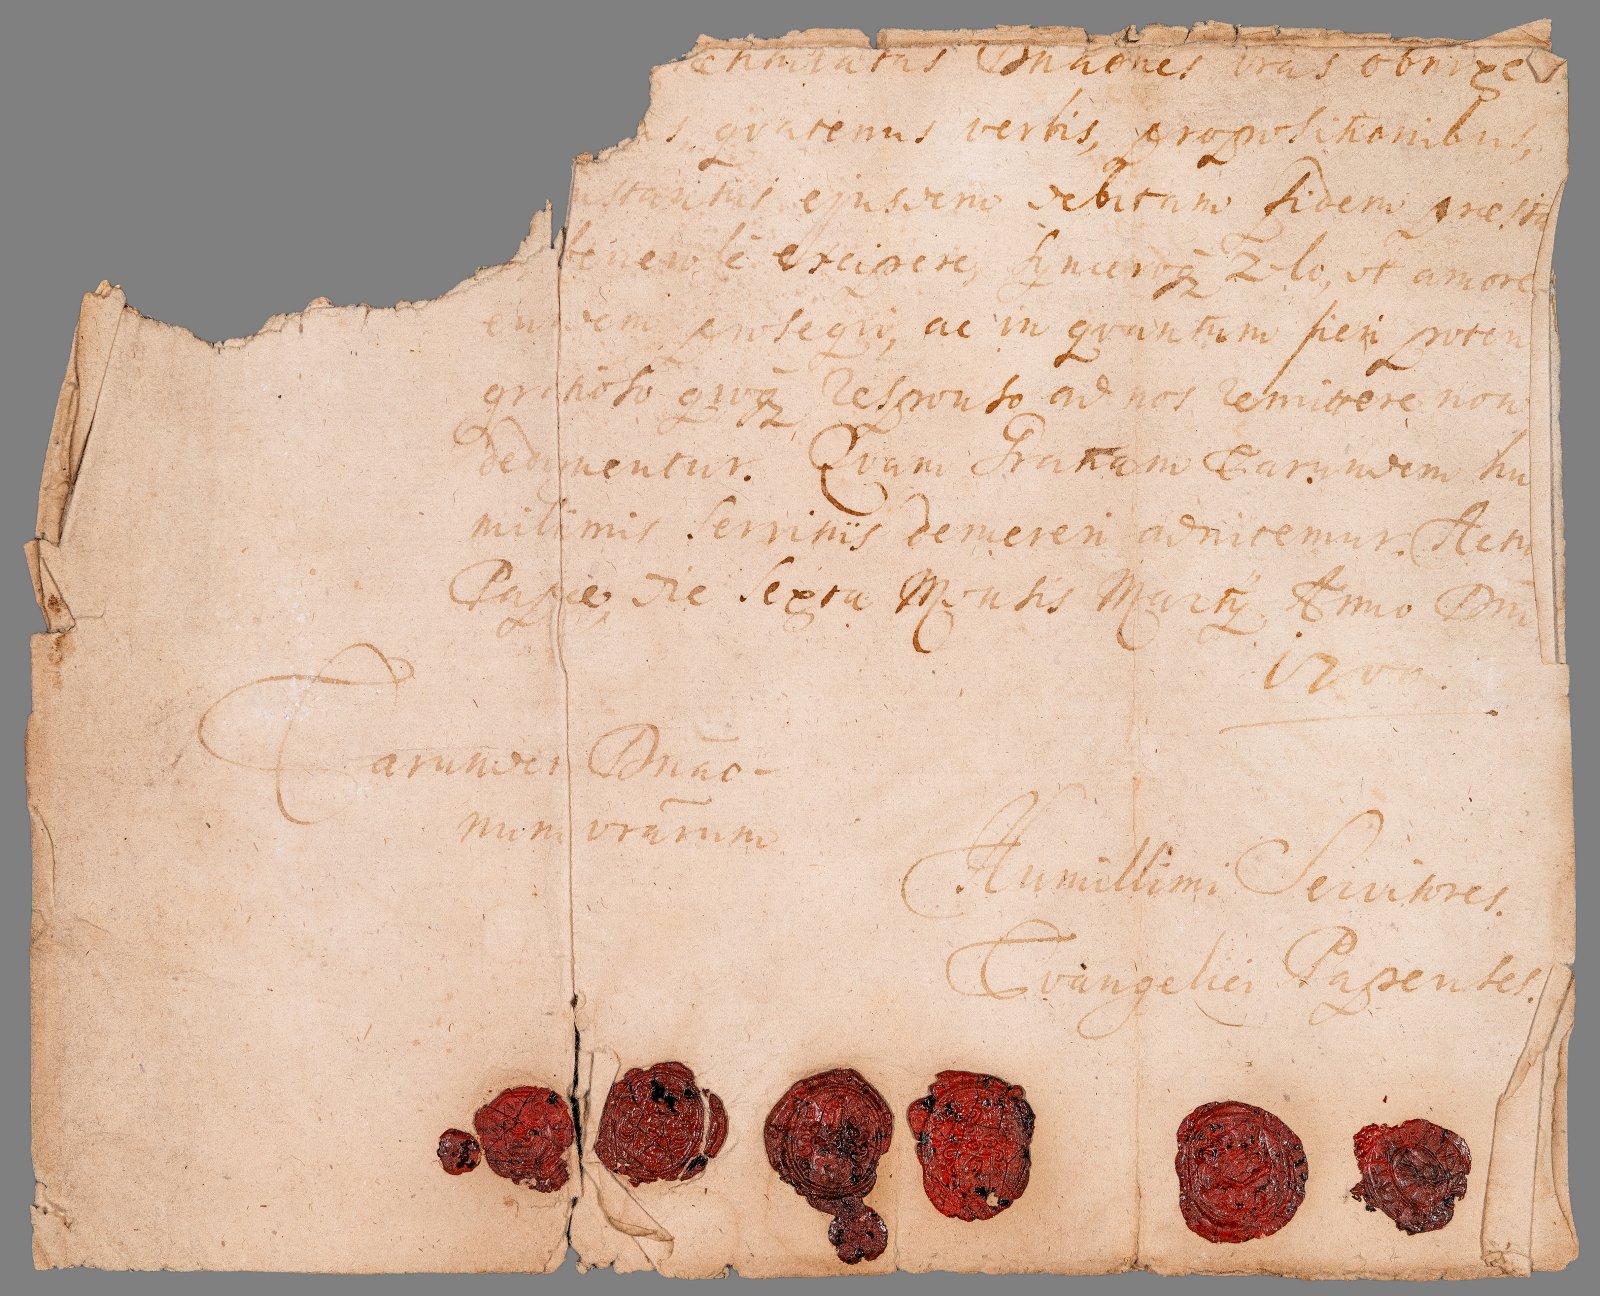 Dnaones vras obnixe
qvatenus verbis, propositionibus,
instantiis ejusdem debitam fidem præsta
benevole excipere, synceroq; Zelo, et amore
eundem proseqvi, ac in qvantum fieri poten
gratioso qvoq; Responso ad nos remittere non
dedignentur. Qvam Gratiam Earundem hu
milimis servitiis demereri adnitemur. Actu
Papæ, die sexta Mensis Martÿ Anno Dni
1700.
Earunden Dnao-
num vrarum
Humillimi Servitores.
Evangelici Papenses.